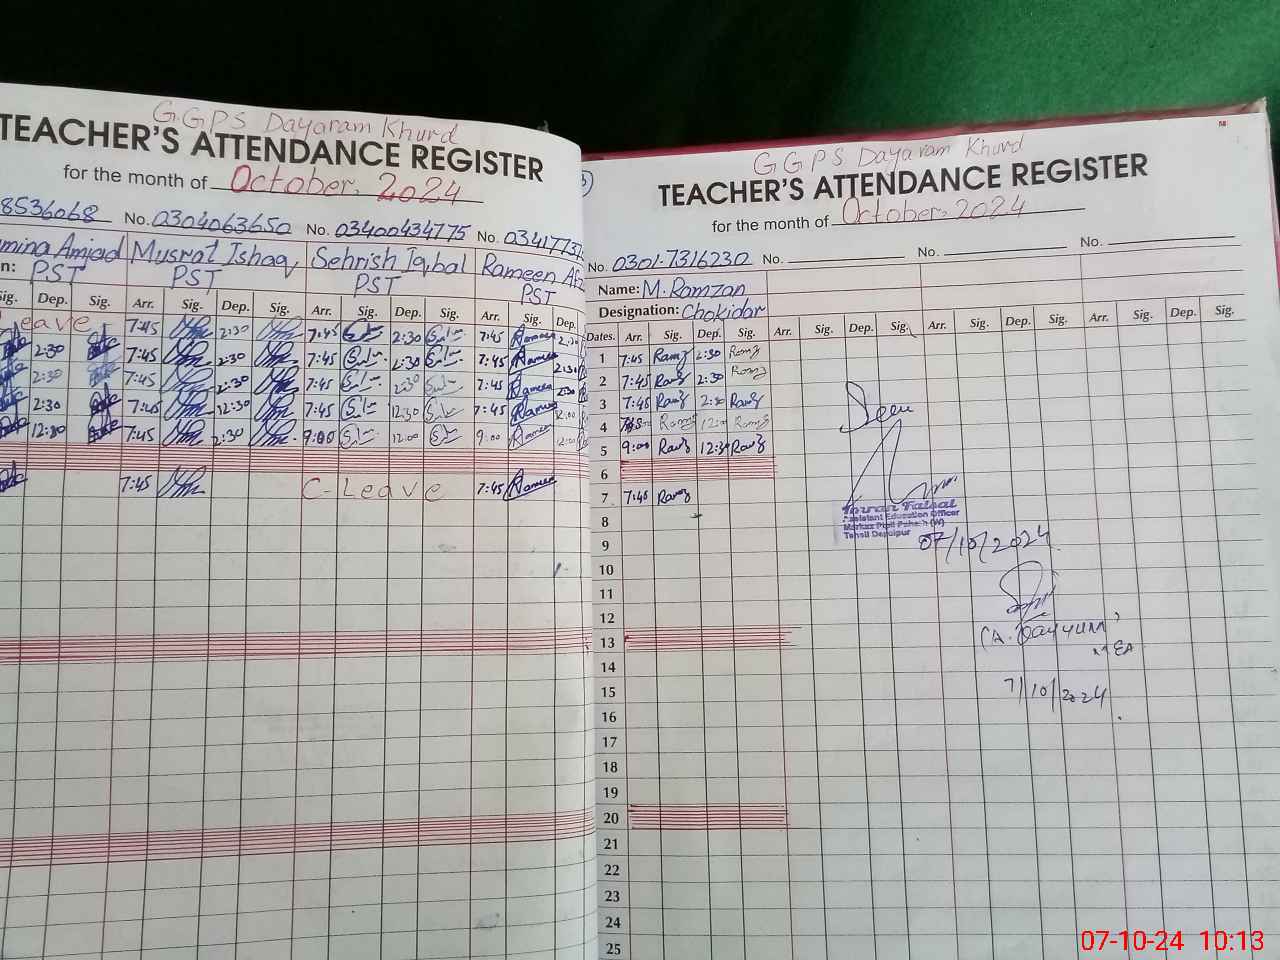 G.G.P.S Dayaram Khurd
TEACHER'S ATTENDANCE REGISTER
for the month of October, 2024
8536068 No. 0304063650 No. 03400434775 No. 0341773
mina Amjad Musrat Ishaq Sehrish Iqbal Rameen Af
n: PST PST PST PST
Sig. Dep. Sig. Arr. Sig. Dep. Sig. Arr. Sig. Dep. Sig. Arr. Sig. Dep.
Leave 7:45 2:30 7:45 2:30 7:45 Rameen 2:30
2:30 7:45 2:30 7:45 2:30 7:45 Rameen 2:30
2:30 7:45 2:30 7:45 2:30 7:45 Rameen
2:30 7:45 12:30 7:45 12:30 7:45 Rameen 12:00
12:30 7:45 2:30 9:00 12:00 9:00 Rameen 12:00
7:45 C-Leave 7:45 Rameen
GGPS Dayaram Khurd
TEACHER'S ATTENDANCE REGISTER
for the month of October, 2024
No. 0301-7316230 No. No.
Name: M. Ramzan
Designation: Chokidar
Dates. Arr. Sig. Dep. Sig. Arr. Sig. Dep. Sig. Arr. Sig. Dep. Sig. Arr. Sig. Dep. Sig.
1 7:45 Ramz 2:30 Ramz
2 7:45 Ramz 2:30 Ramz
3 7:45 Ramz 2:30 Ramz
4 Ramz 12:00 Ramz
5 9:00 Ramz 12:30 Ramz
6
7 7:45 Ramz
8
9
10
11
12
13
14
15
16
17
18
19
20
21
22
23
24
25
Seen
Assistant Education Officer
Tehsil Depalpur
07/10/2024
(A. Qayyum)
MEA
7/10/2024
07-10-24 10:13